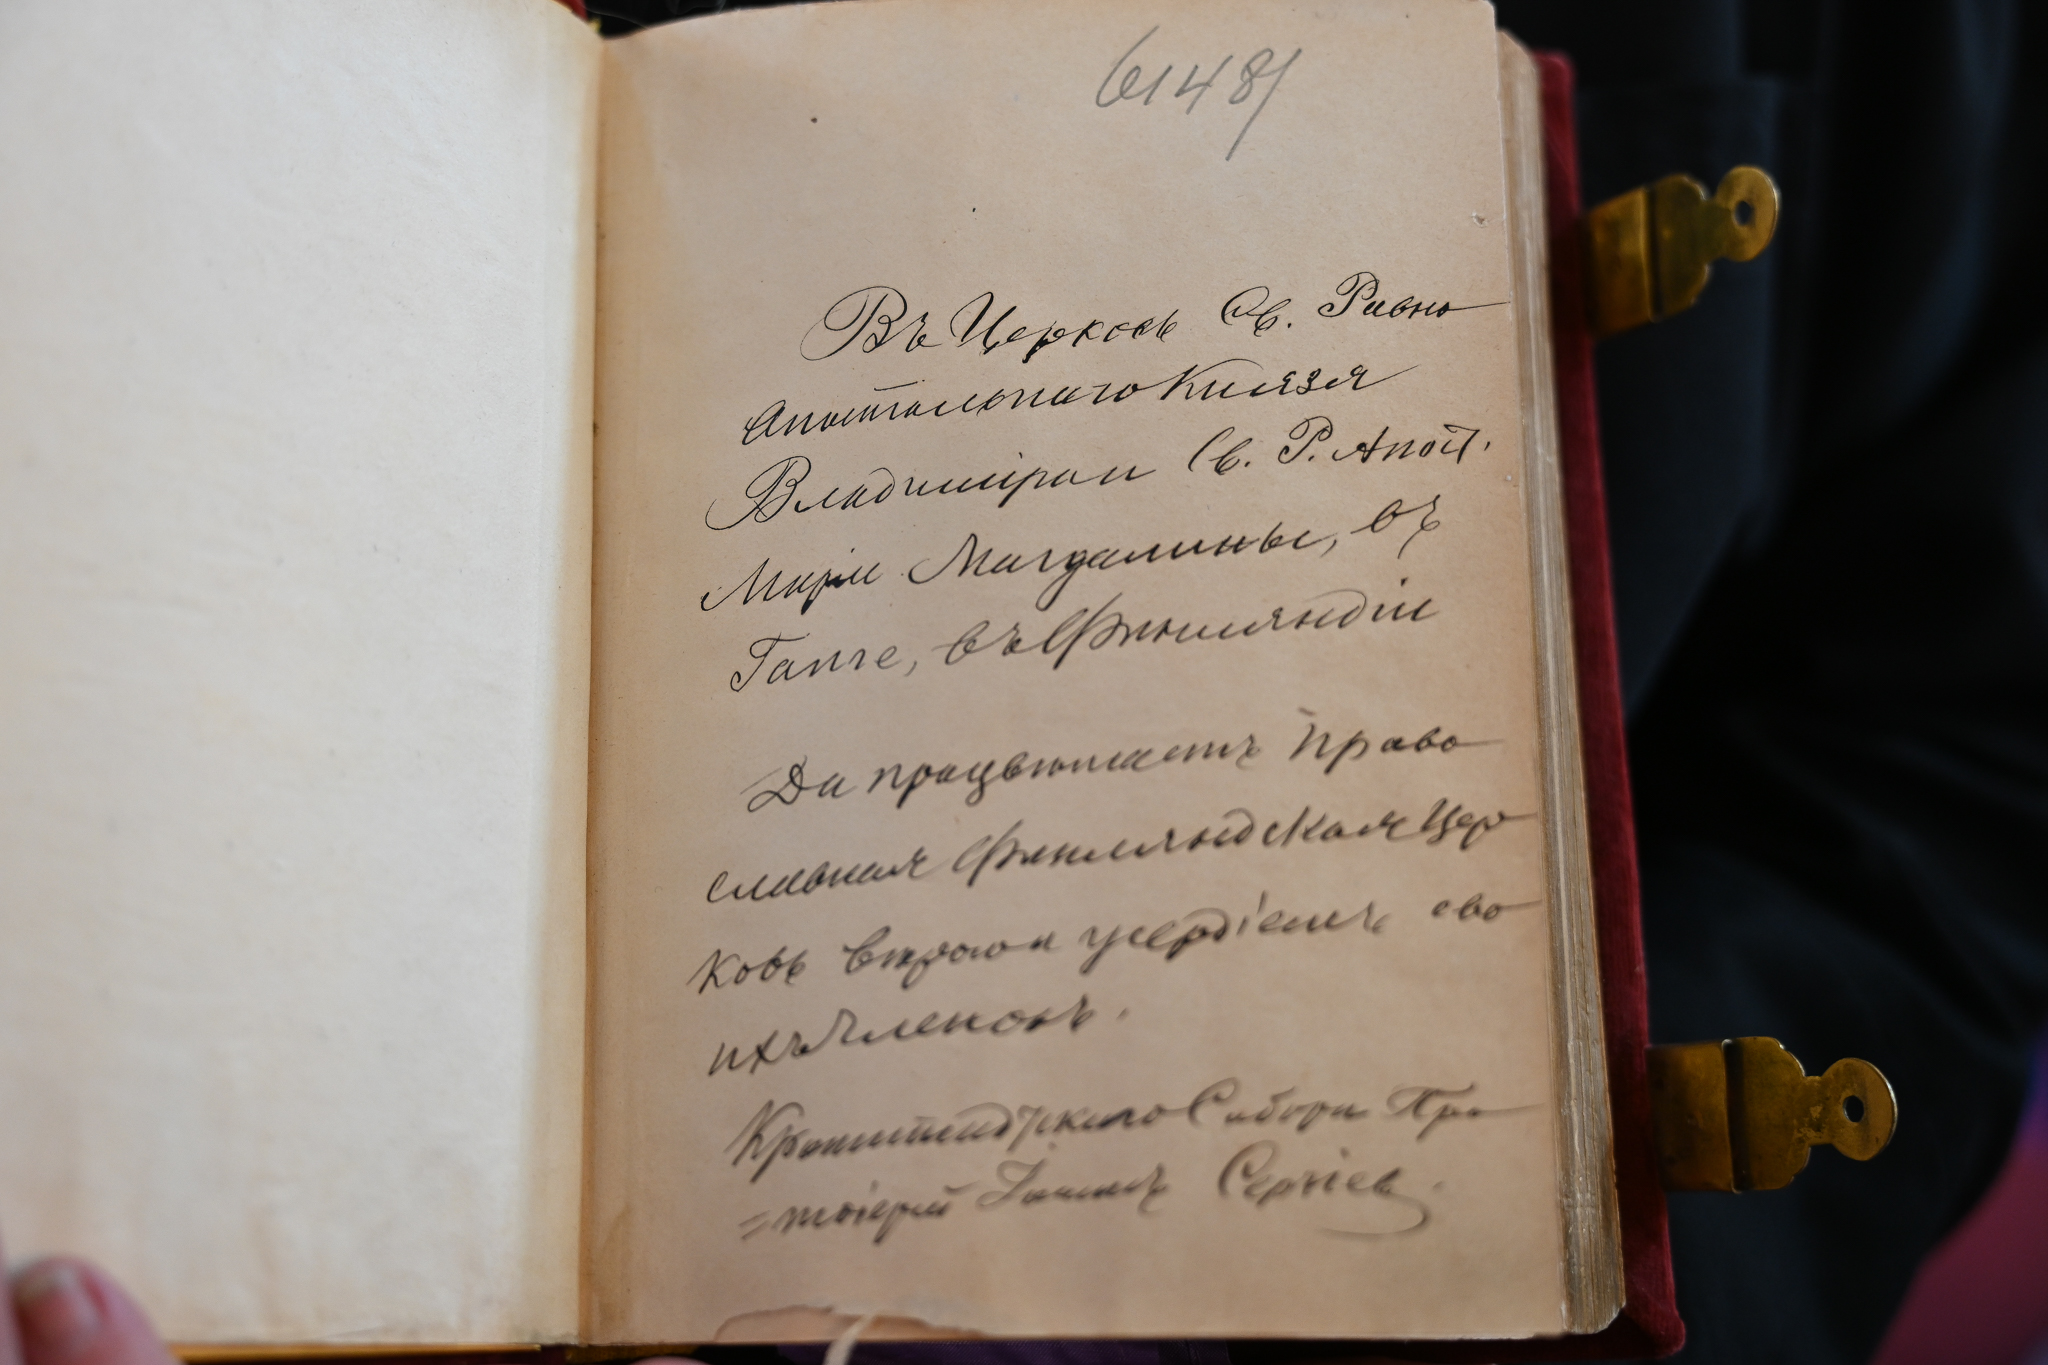 6148/
Въ Церковь Св. Равно
апостольнаго Князя
Владиміра и Св. Р. Апост.
Маріи Магдалины, въ
Ганге, въ Финляндіи
Да процвѣтаетъ Право
славная Финляндская Цер
ковь вѣрою и усердіемъ сво
ихъ Членовъ.
Кронштадтскаго Собора Про
=тоіерей Іоаннъ Сергіев.